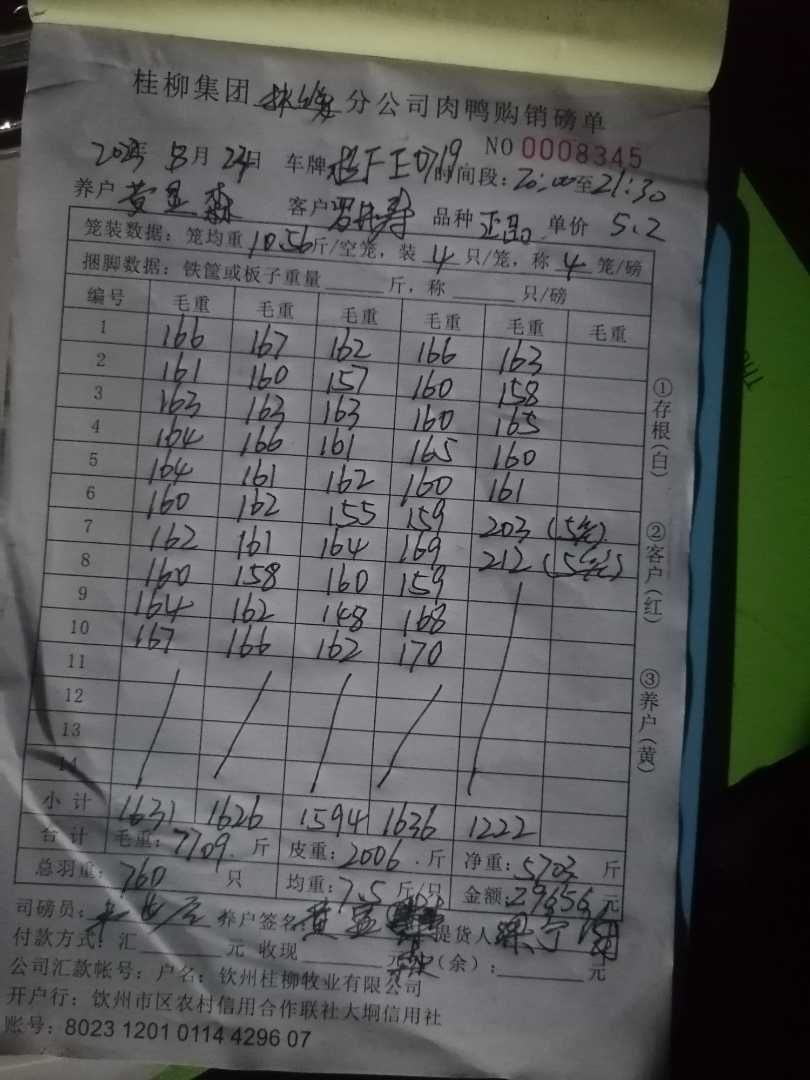 桂柳集团 分公司肉鸭购销磅单
NO 0008345
月 24日 车牌 0719 时间段：20:00至21:30
养户 黄 森 客户 寿 品种 正品 单价 5.2
笼装数据：笼均重 10.56 斤/空笼，装 4 只/笼，称 4 笼/磅
捆脚数据：铁筐或板子重量 斤，称 只/磅
编号 毛重 毛重 毛重 毛重 毛重 毛重
1 166 167 162 166 163
2 161 160 157 160 158
3 163 163 163 160 165
4 164 166 161 165 160
5 164 161 162 160 161
6 160 162 155 159 203 (5笼)
7 162 161 164 169 212 (5笼)
8 160 158 160 159
9 164 162 148 168
10 167 166 162 170
11
12
13
14
小计 1631 1626 1594 1636 1222
合计 毛重：7709 斤 皮重：2006 斤 净重：5703 斤
总羽重：760 只 均重：7.5 斤/只 金额：29656 元
司磅员： 养户签名：黄 提货人
付款方式：汇 元 收现 元 （余）： 元
公司汇款帐号：户名：钦州桂柳牧业有限公司
开户行：钦州市区农村信用合作联社大垌信用社
账号：8023 1201 0114 4296 07
①存根（白）
②客户（红）
③养户（黄）